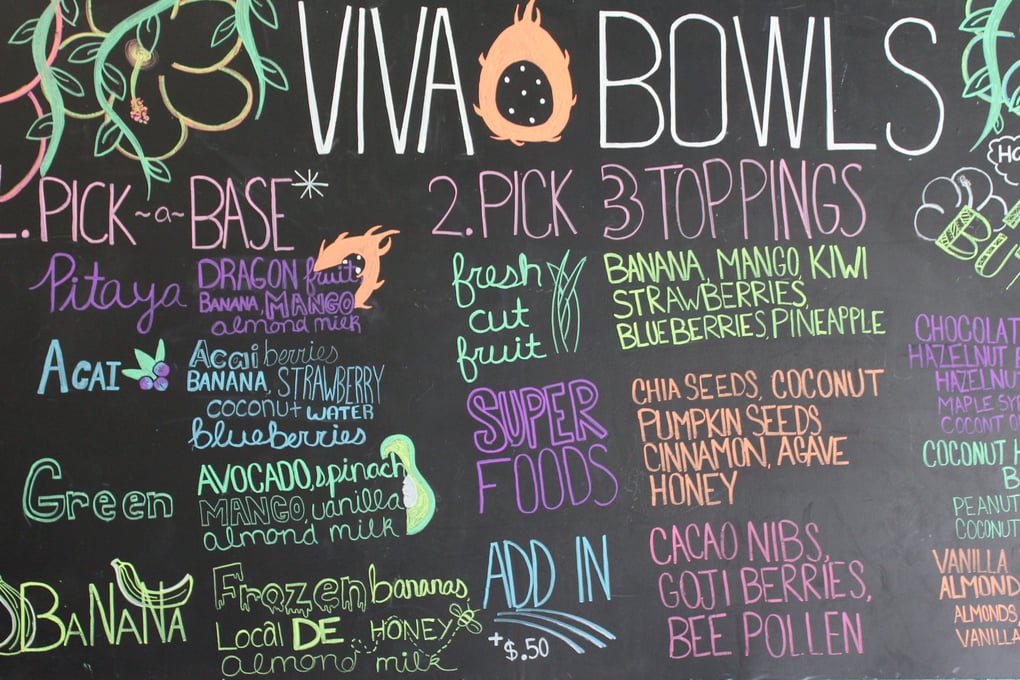 VIVA BOWLS
1. PICK ~a~ BASE*
Pitaya
DRAGON fruit
BANANA, MANGO
almond milk
ACAI
Acai berries
BANANA, STRAWBERRY
coconut WATER
blueberries
Green
AVOCADO, spinach
MANGO, vanilla
almond milk
BANANA
Frozen bananas,
Local DE HONEY
almond milk
2. PICK 3 TOPPINGS
fresh
cut
fruit
BANANA, MANGO, KIWI
STRAWBERRIES,
BLUEBERRIES, PINEAPPLE
SUPER
FOODS
CHIA SEEDS, COCONUT
PUMPKIN SEEDS
CINNAMON, AGAVE
HONEY
ADD IN
+$.50
CACAO NIBS,
GOJI BERRIES,
BEE POLLEN
HAZELNUT
MAPLE
COCONUT
VANILLA
ALMOND
ALMONDS,
VANILLA